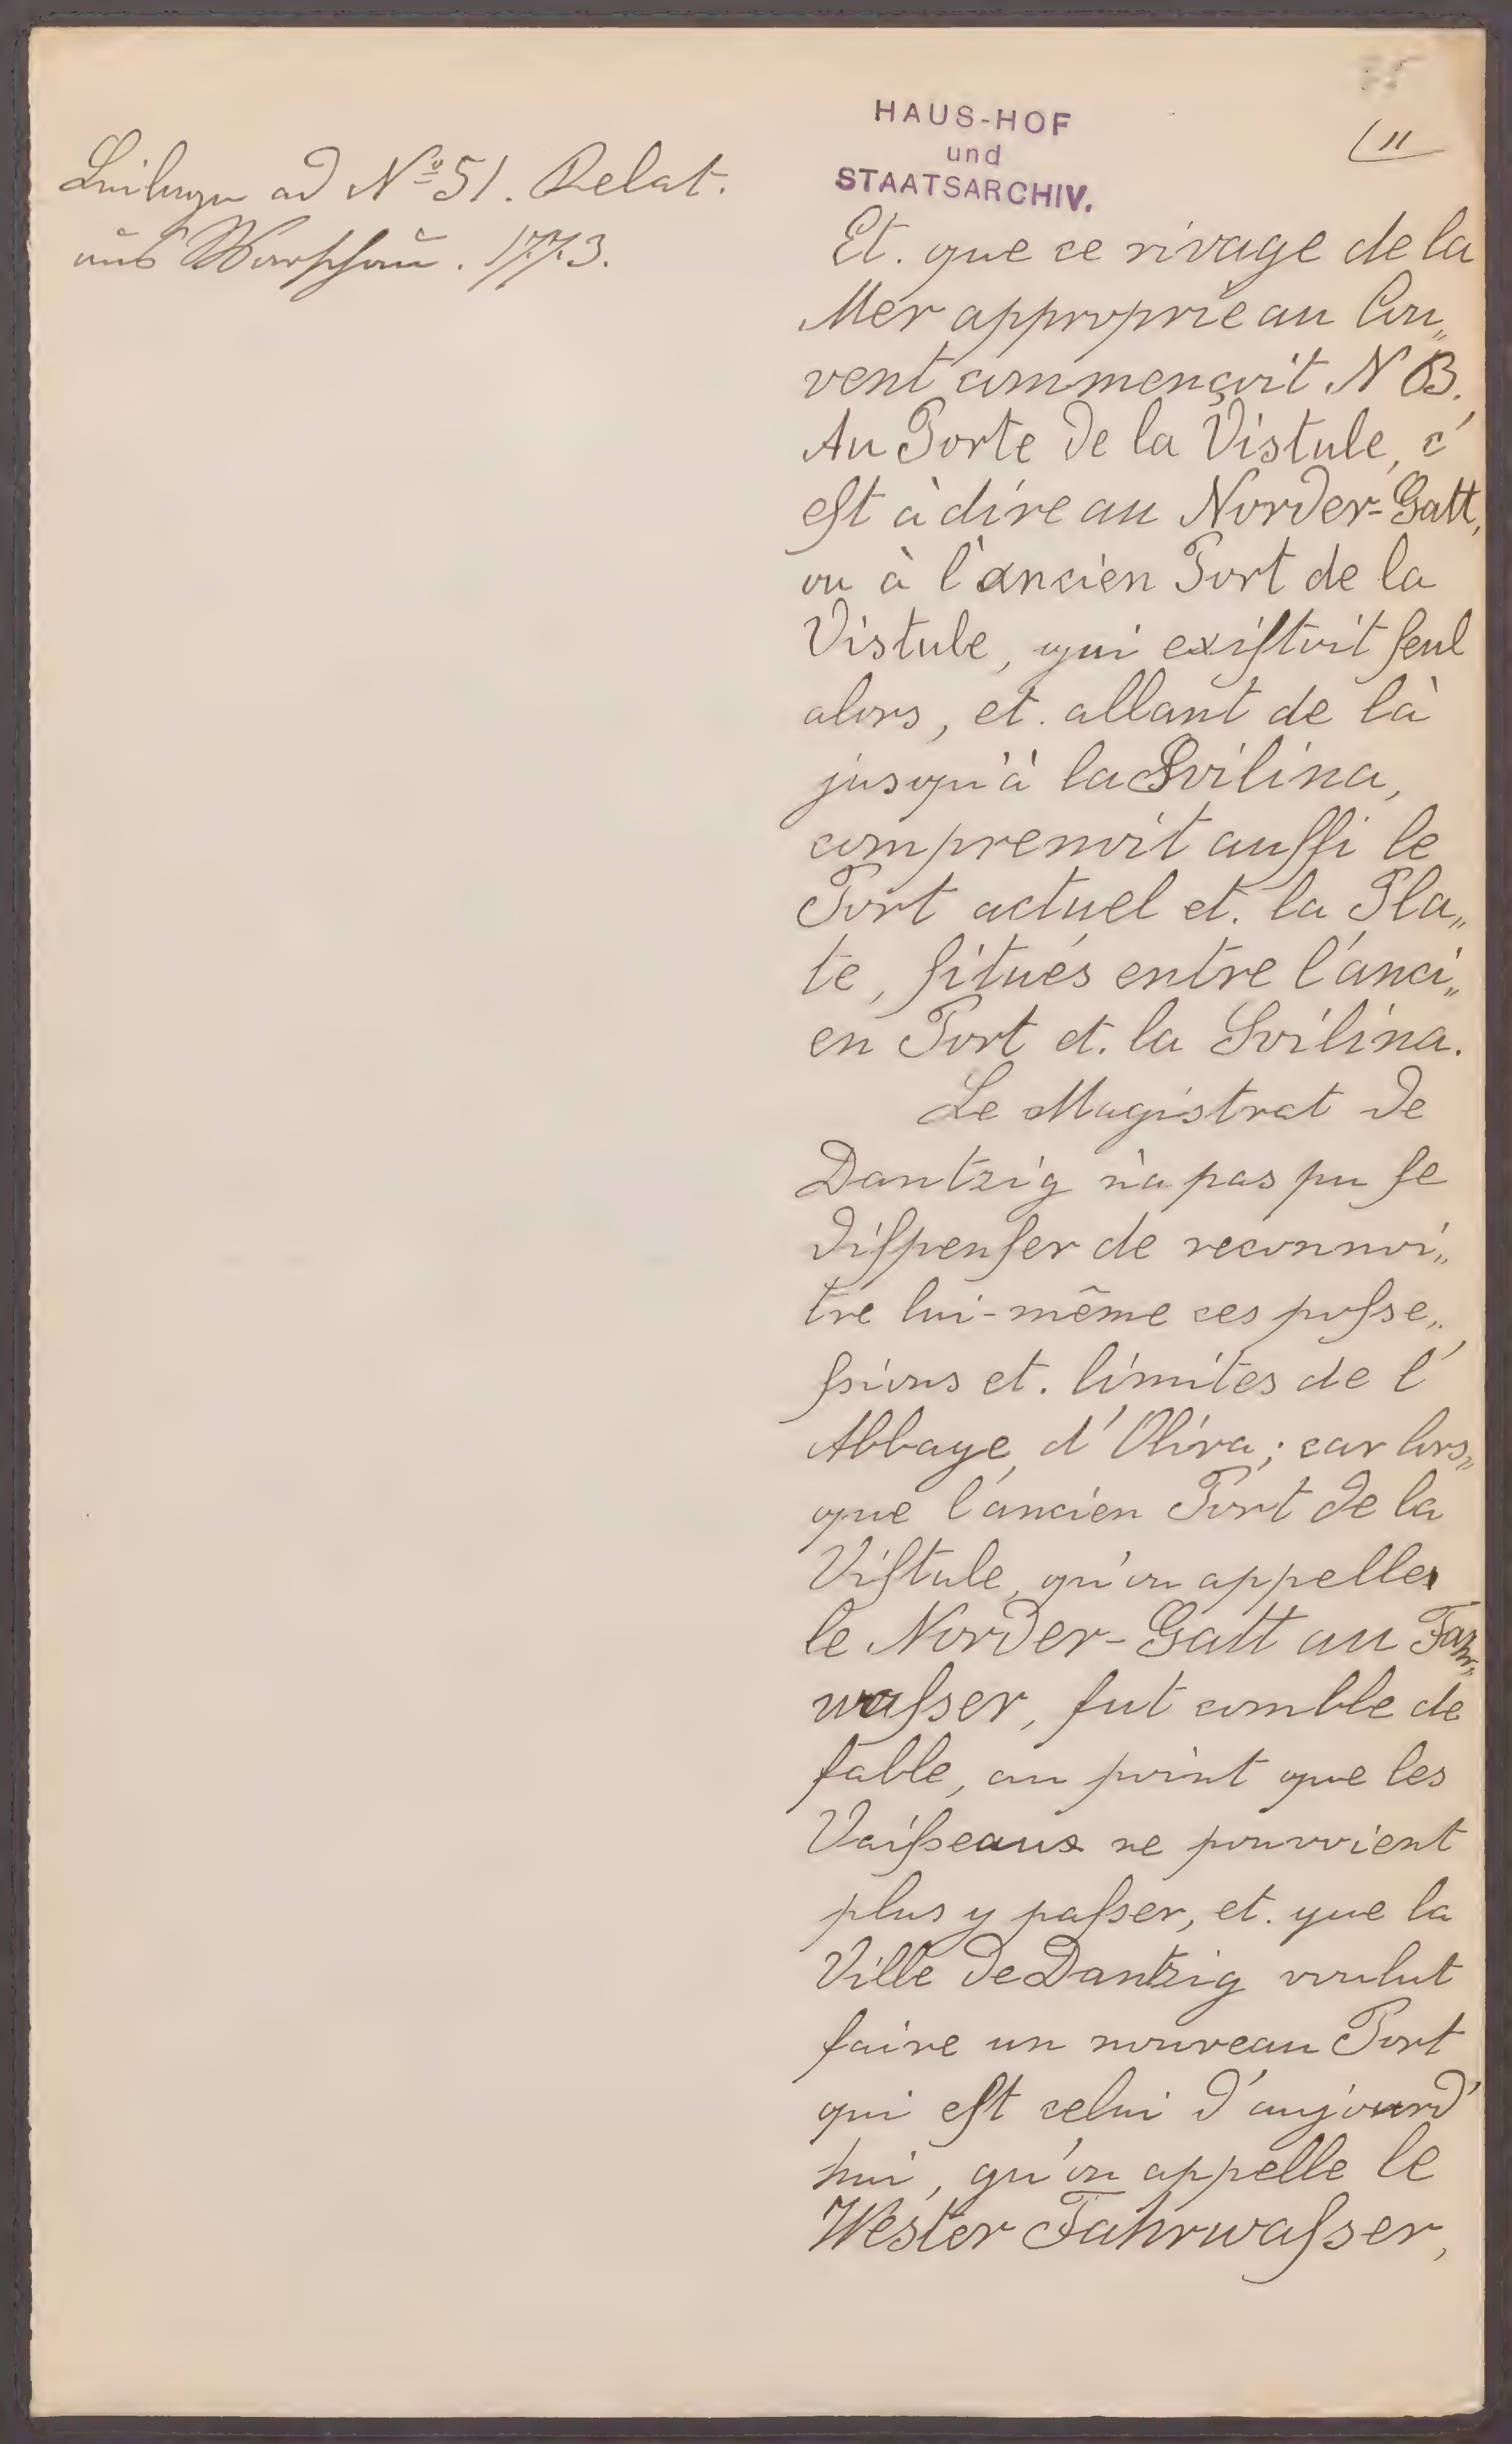 Beilagen ad Nº 51. Relat.
aus Warschau. 1773.
HAUS-HOF
und
STAATSARCHIV.
11
Et. que ce rivage de la
Mer approprié au Cou„
vent commençoit NB.
Au Porte de la Vistule, c'
eſt à dire au Norder-Gatt,
ou à l'ancien Port de la
Vistule, qui exiſtoit ſeul
alors, et. allant de là
jusqu'à la Svilina,
comprenoit auſſi le
Port actuel et. la Pla„
te, ſitués entre l'anci„
en Port et. la Svilina.
Le Magistrat de
Dantzig n'a pas pu ſe
diſpenſer de reconnoi„
tre lui-même ces poſse„
ſsions et. limites de l'
Abbaye d'Oliva; car lors„
que l'ancien Port de la
Viſtule, qu'on appelles
le Norder-Gatt au Fahr„
waſser, fut comble de
ſable, au point que les
Vaiſseaux ne pouvoient
plus y paſser, et. que la
Ville de Dantzig voulut
faire un nouveau Port
qui eſt celui d'aujourd'
hui, qu'on appelle le
Wester Fahrwaſser,